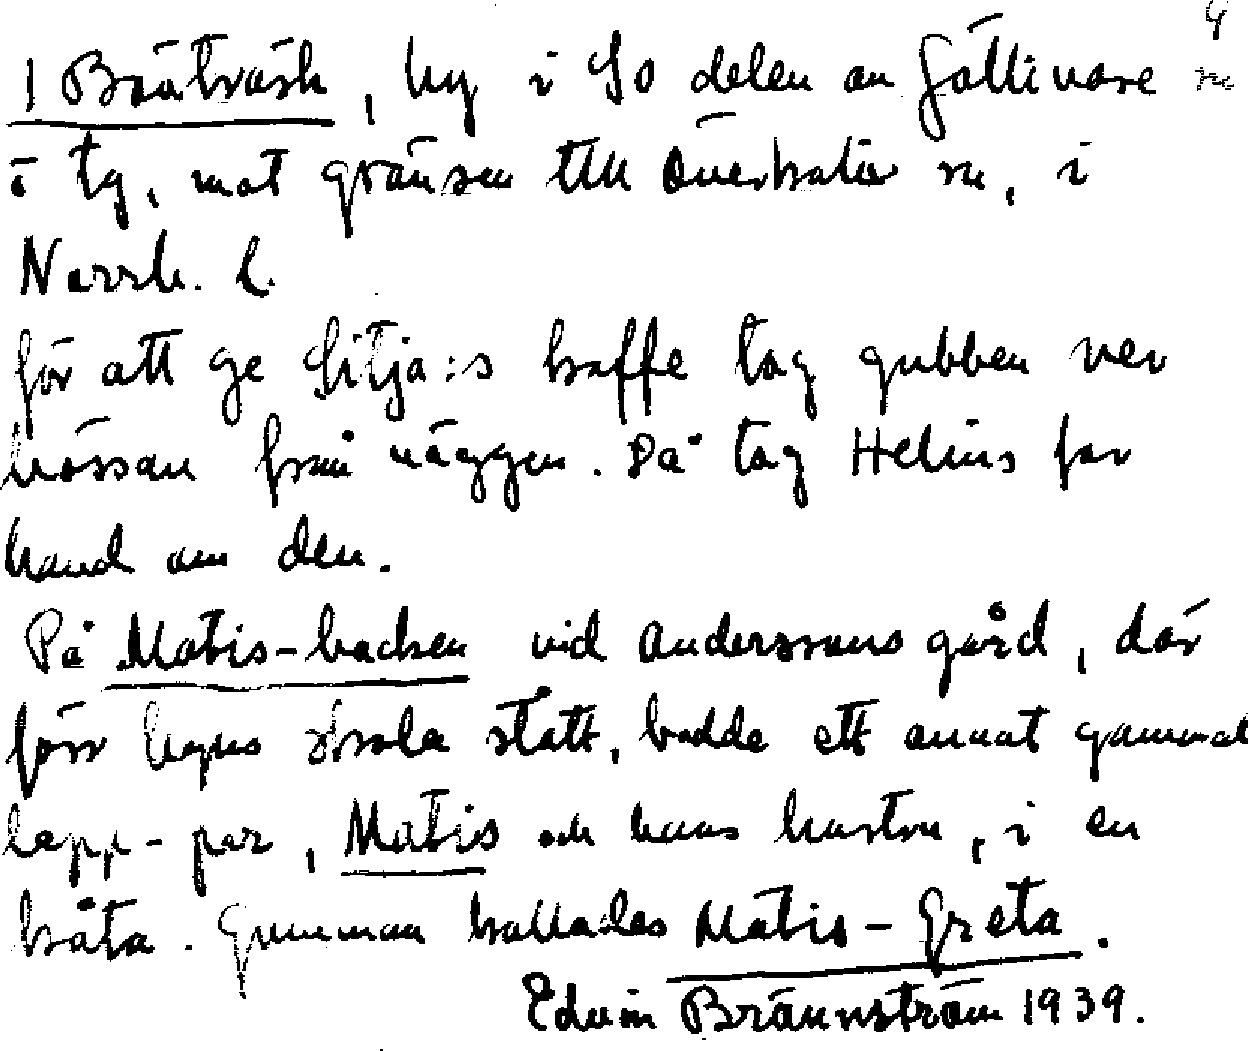 I Brätträsk, by i SO delen av Gällivare sn
i Lg, mot gränsen till Överkalix sn, i
Norrb. l.
för att ge Silja:s kaffe tog gubben ner
bössan från väggen. Då tog Helins far
hand om den.
På Matis-backen vid Anderssons gård, där
förr byns skola stått, bodde ett annat gammal
lapp-par, Matis och hans hustru, i en
kåta. Gumman kallades Matis-Greta.
Edvin Brännström 1939.